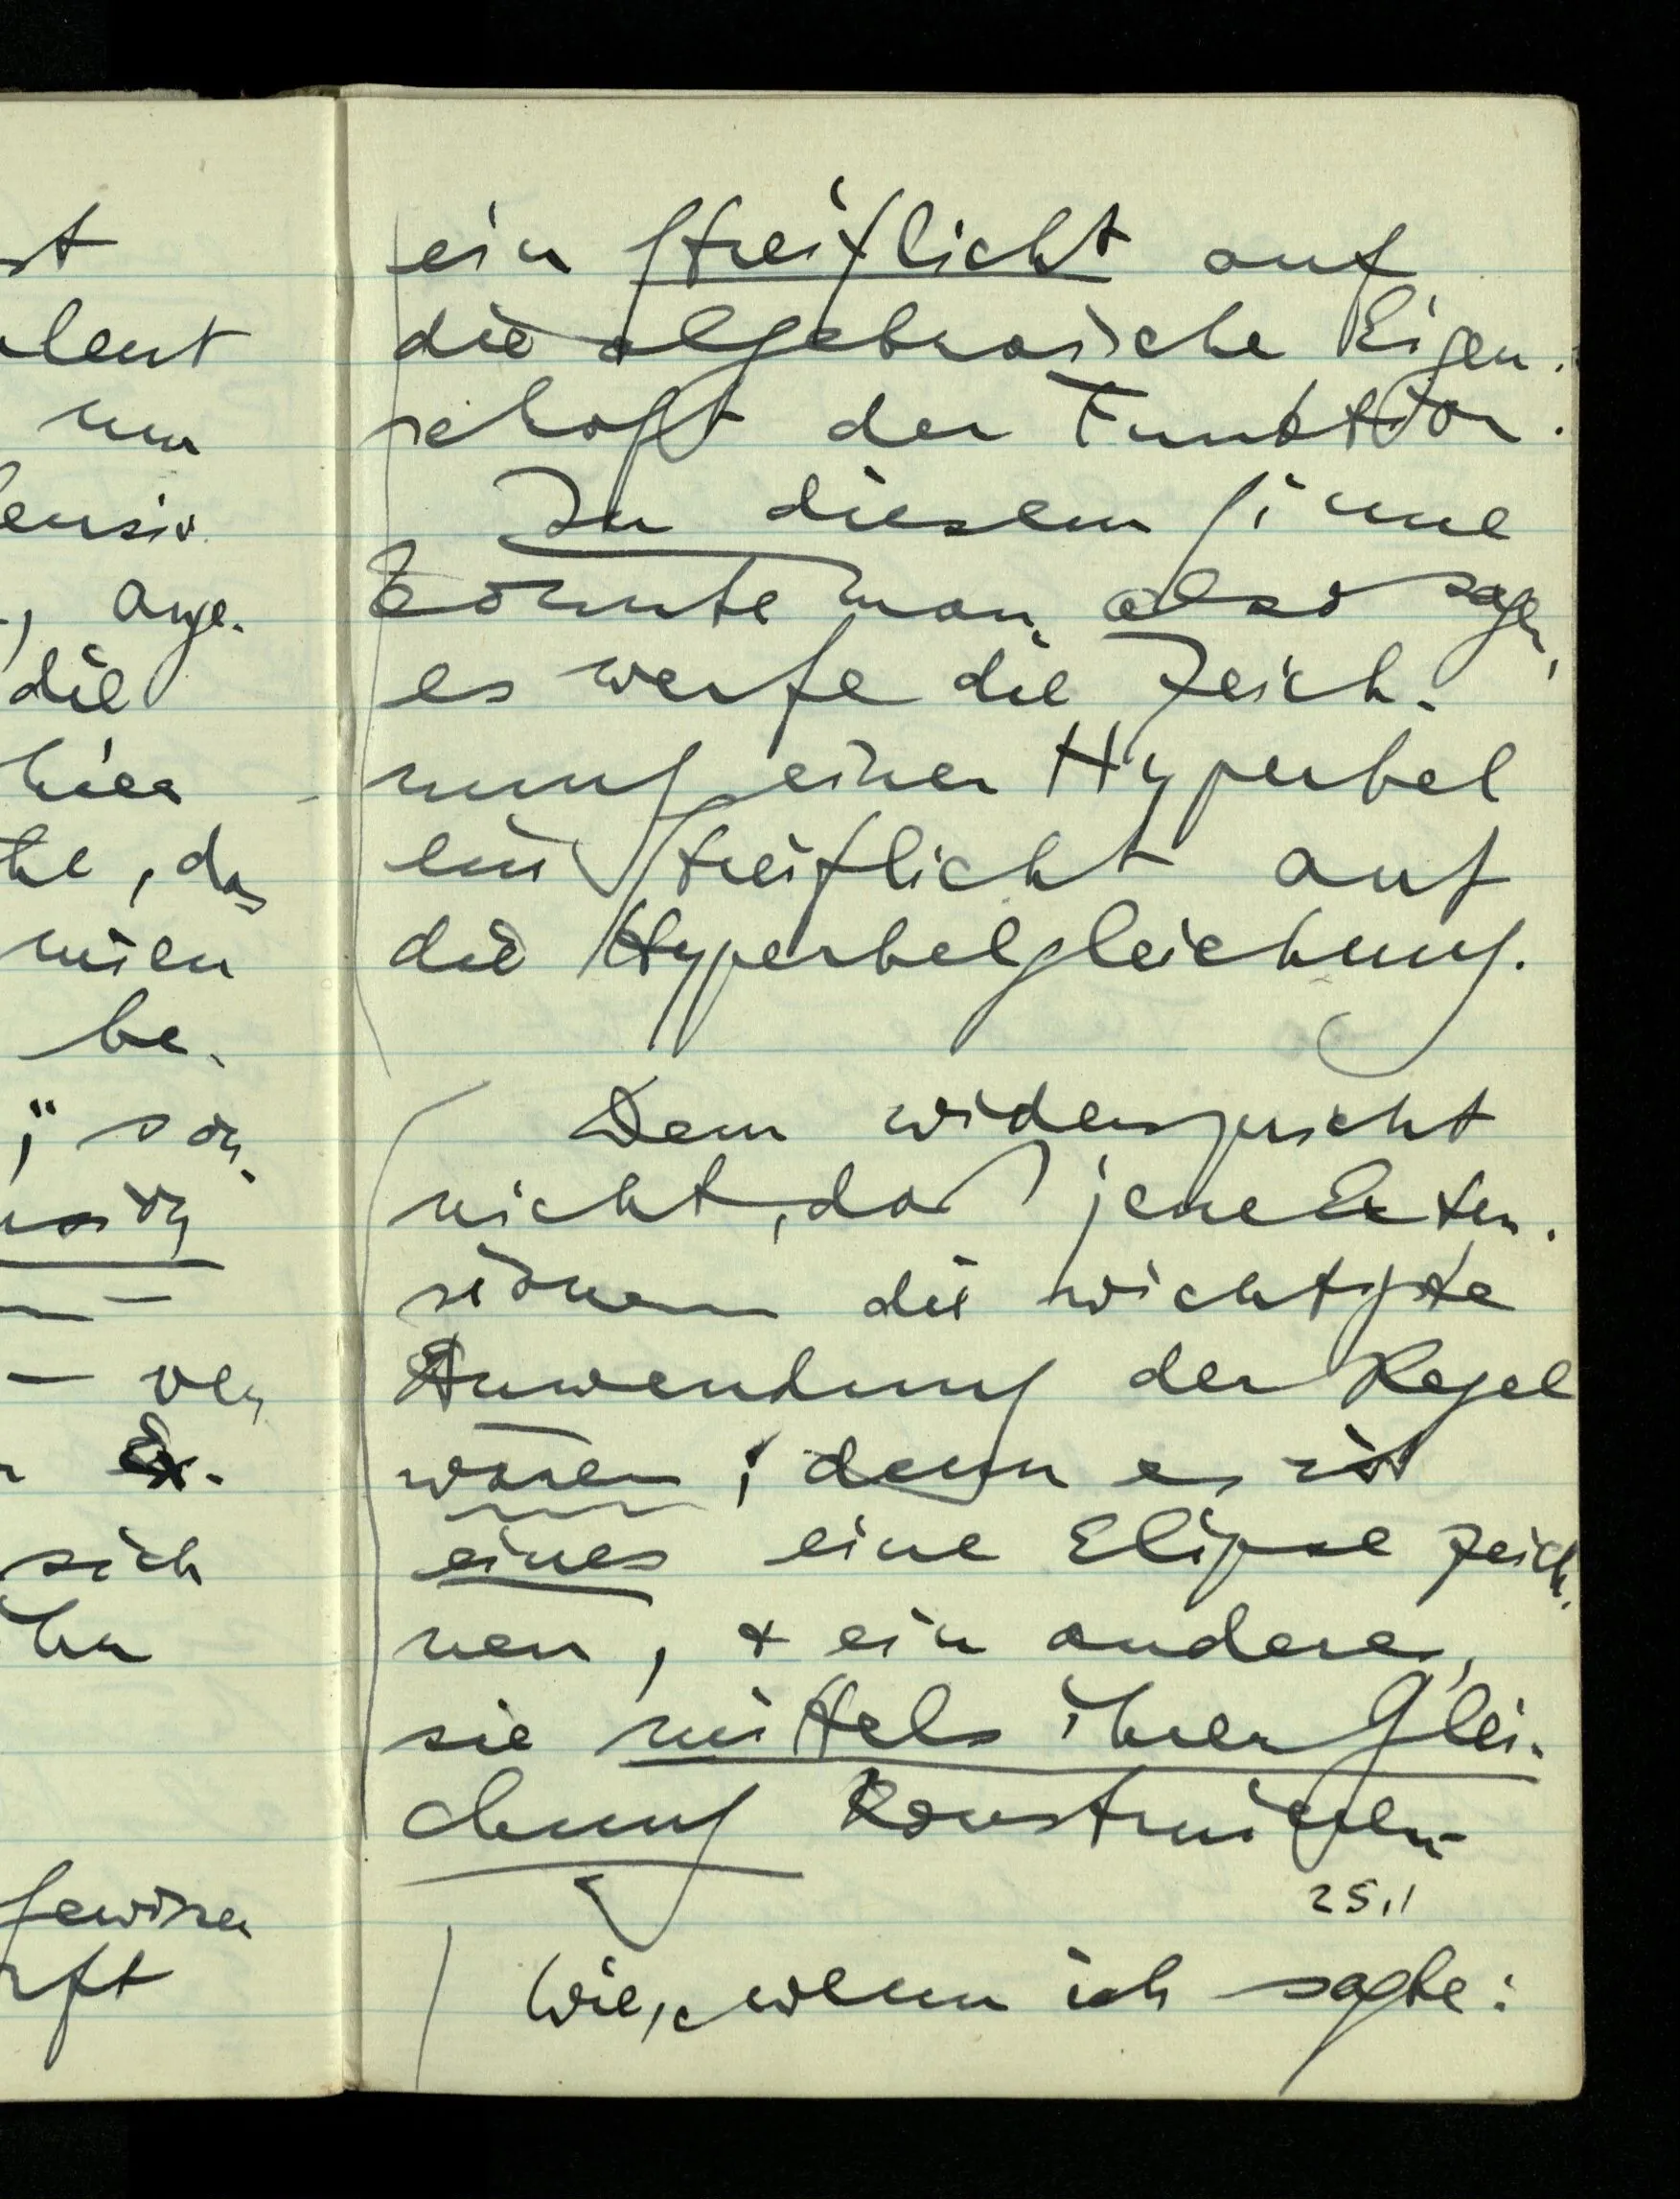 st
alent
nur
ensio
-, ange-
die
hier
te, das
mien
be-
;" son-
usion
— ver
Ex-
sich
ihn
Gewissen
rft
ein Streiflicht auf
die algebraische Eigen-
schaft der Funktion.
In diesem Sinne
könnte man also sagen,
es werfe die Zeich-
nung einer Hyperbel
ein Streiflicht auf
die Hyperbelgleichung.
Dem widerspricht
nicht, daß jene Exten-
sionen die wichtigste
Anwendung der Regel
wären; denn es ist
eines eine Elipse zeich-
nen, & ein anderes,
sie mittels ihrer Glei-
chung konstruieren.
25.1
Wie, wenn ich sagte: